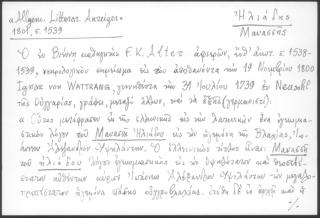 «Allgem. Litterar. Anzeiger»
1801, σ. 1539
Ἠλιάδης
Μανασσῆς
Ὁ ἐν Βιέννῃ καθηγητὴς F. K. Alter ἀφιερῶν, ἀπὸ σ. 1538-
1539, νεκρολογικὸν σημείωμα εἰς τὸν ἀποθανόντα τὴν 19 Νοεμβρίου 1800
Ignaz von γεννηθέντα τὴν 31 Ἰουλίου 1739 ἐν
τῆς Οὑγγαρίας, γράφει, μεταξὺ ἄλλων, καὶ τὰ ἑξῆς (γερμανιστί):
« Οὗτος μετέφρασεν ἐκ τῆς ἑλληνικῆς εἰς τὴν λατινικὴν ἕνα ἐγκωμια-
στικὸν λόγον τοῦ Μανασσῆ Ἠλιάδου εἰς τὸν ἡγεμόνα τῆς Βλαχίας,
Ἀλέξανδρον Ὑψηλάντην. Ὁ ἑλληνικὸς τίτλος εἶναι: Μανασσῆ
τοῦ Ἠλιάδου λόγος ἐγκωμιαστικὸς εἰς τὸν ὑψηλότατον καὶ
αὐθέντην κύριον Ἀλέξανδρον Ὑψηλάντην τὸν μεγαλο-
πρεπέστατον ἡγεμόνα πάσης οὑγγροβλαχίας.
./.